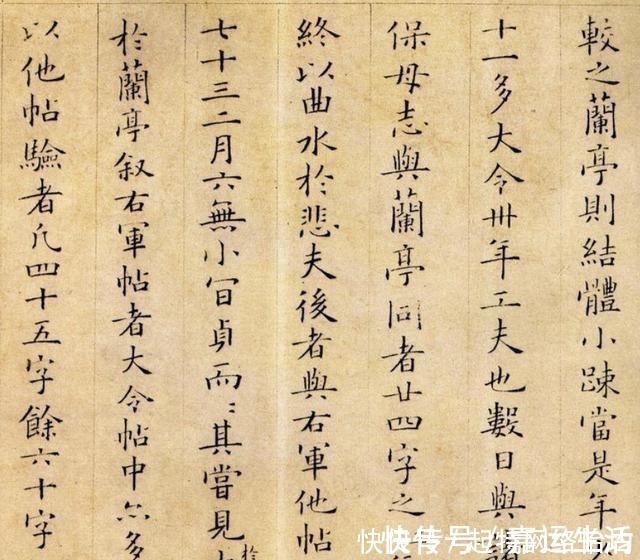 較之蘭亭則結體小踈當是年
十一多大令卅年工夫也數日與
保母志與蘭亭同者廿四字之
終以曲水於悲夫後者與右軍他帖
七十三二月六無小貞而〻其嘗見
於蘭亭叙右軍帖者大令帖中亦多
以他帖驗者凡四十五字餘六十字
快传号